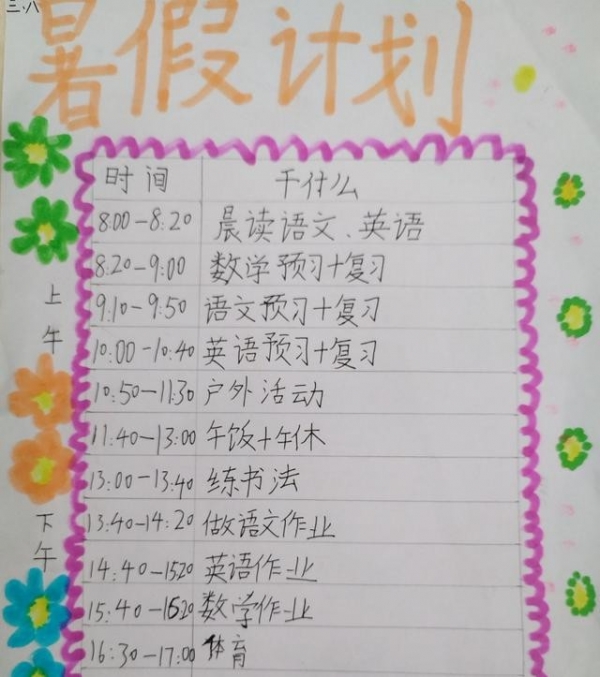 三.八
暑假计划
时间 干什么
8:00-8:20 晨读语文、英语
8:20-9:00 数学预习+复习
9:10-9:50 语文预习+复习
上午
10:00-10:40 英语预习+复习
10:50-11:30 户外活动
11:40-13:00 午饭+午休
13:00-13:40 练书法
下午
13:40-14:20 做语文作业
14:40-1520 英语作业
15:40-1620 数学作业
16:30-17:00 体育